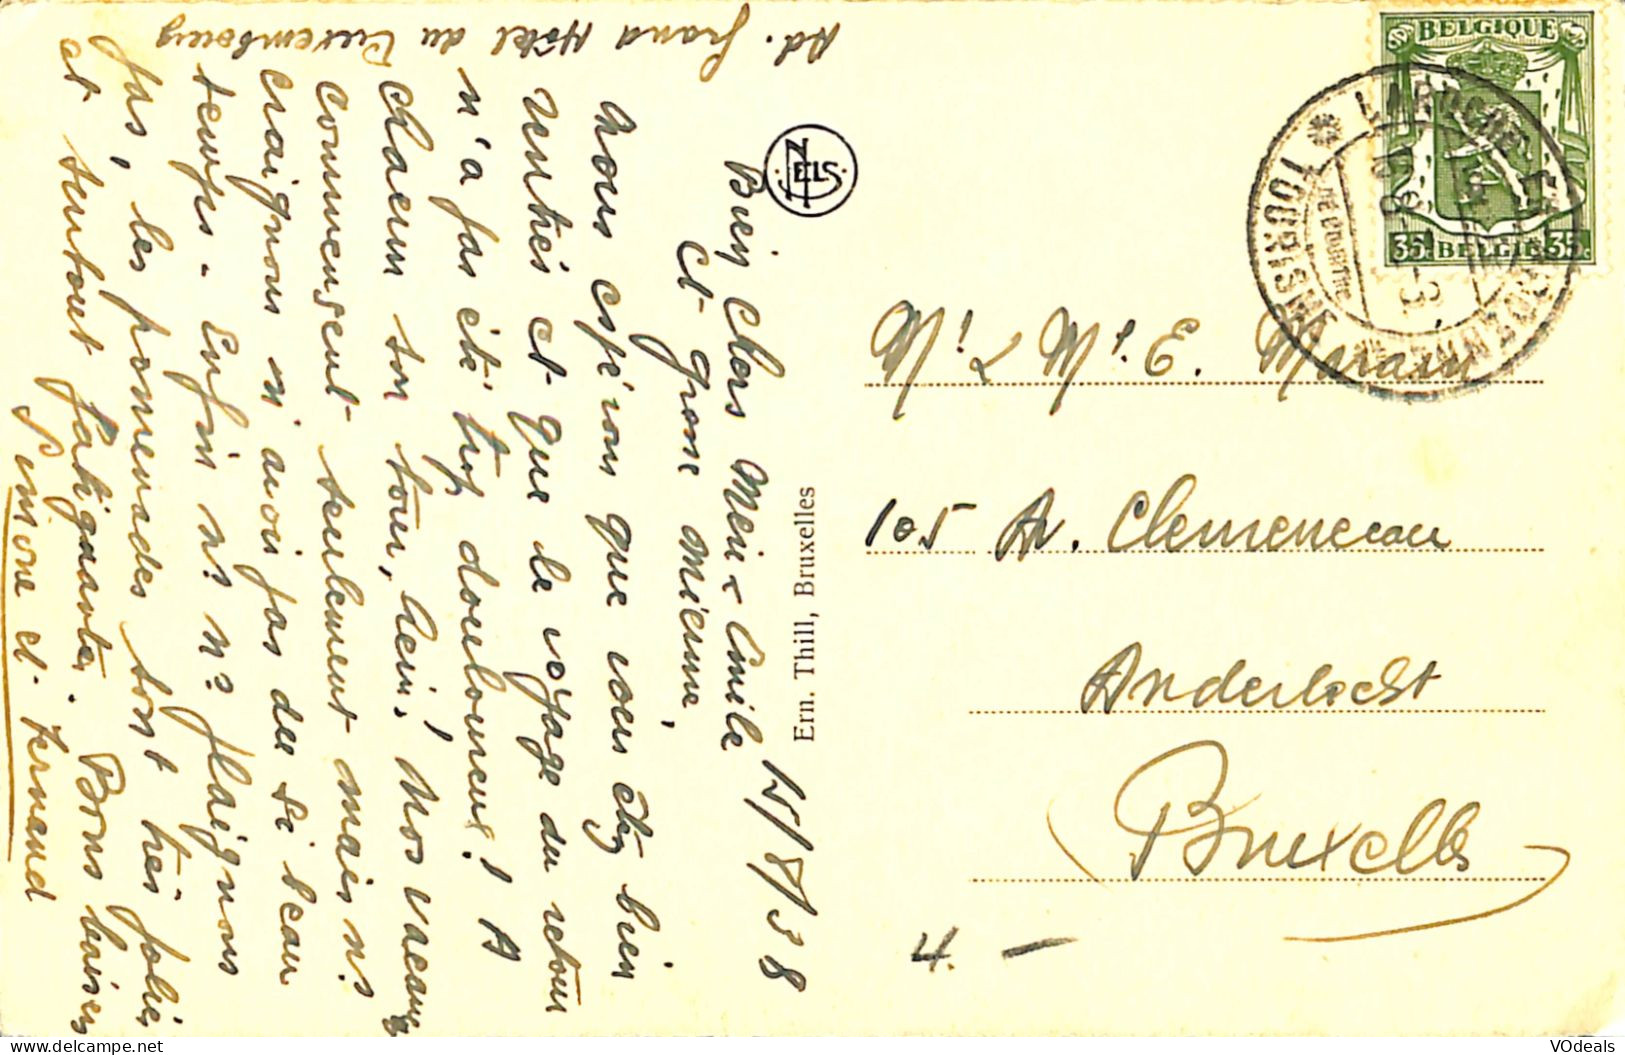 Ad. Grand Hôtel du Luxembourg
15/8/38
Bien Chers Meir & Emile
et grosse Mienne,
Nous espérons que vous êtes bien
rentrés et que le voyage du retour
n'a pas été trop douloureux! A
chacun son tour, hein! Nos vacances
commencent seulement mais ns
craignons n'avoir pas du si beau
temps. Enfin ns ns plaignons
pas, les promenades sont très jolies
et surtout fatiguantes. Bons baisers
Simone et Fernand
NELS
Ern. Thill, Bruxelles
BELGIQUE
35c BELGIË 35c
LAROCHE EN ARDENNE
TOURISME
Mr & Me. E.
105 Av. Clemenceau
Anderlecht
Bruxelles
4. —
VOdeals